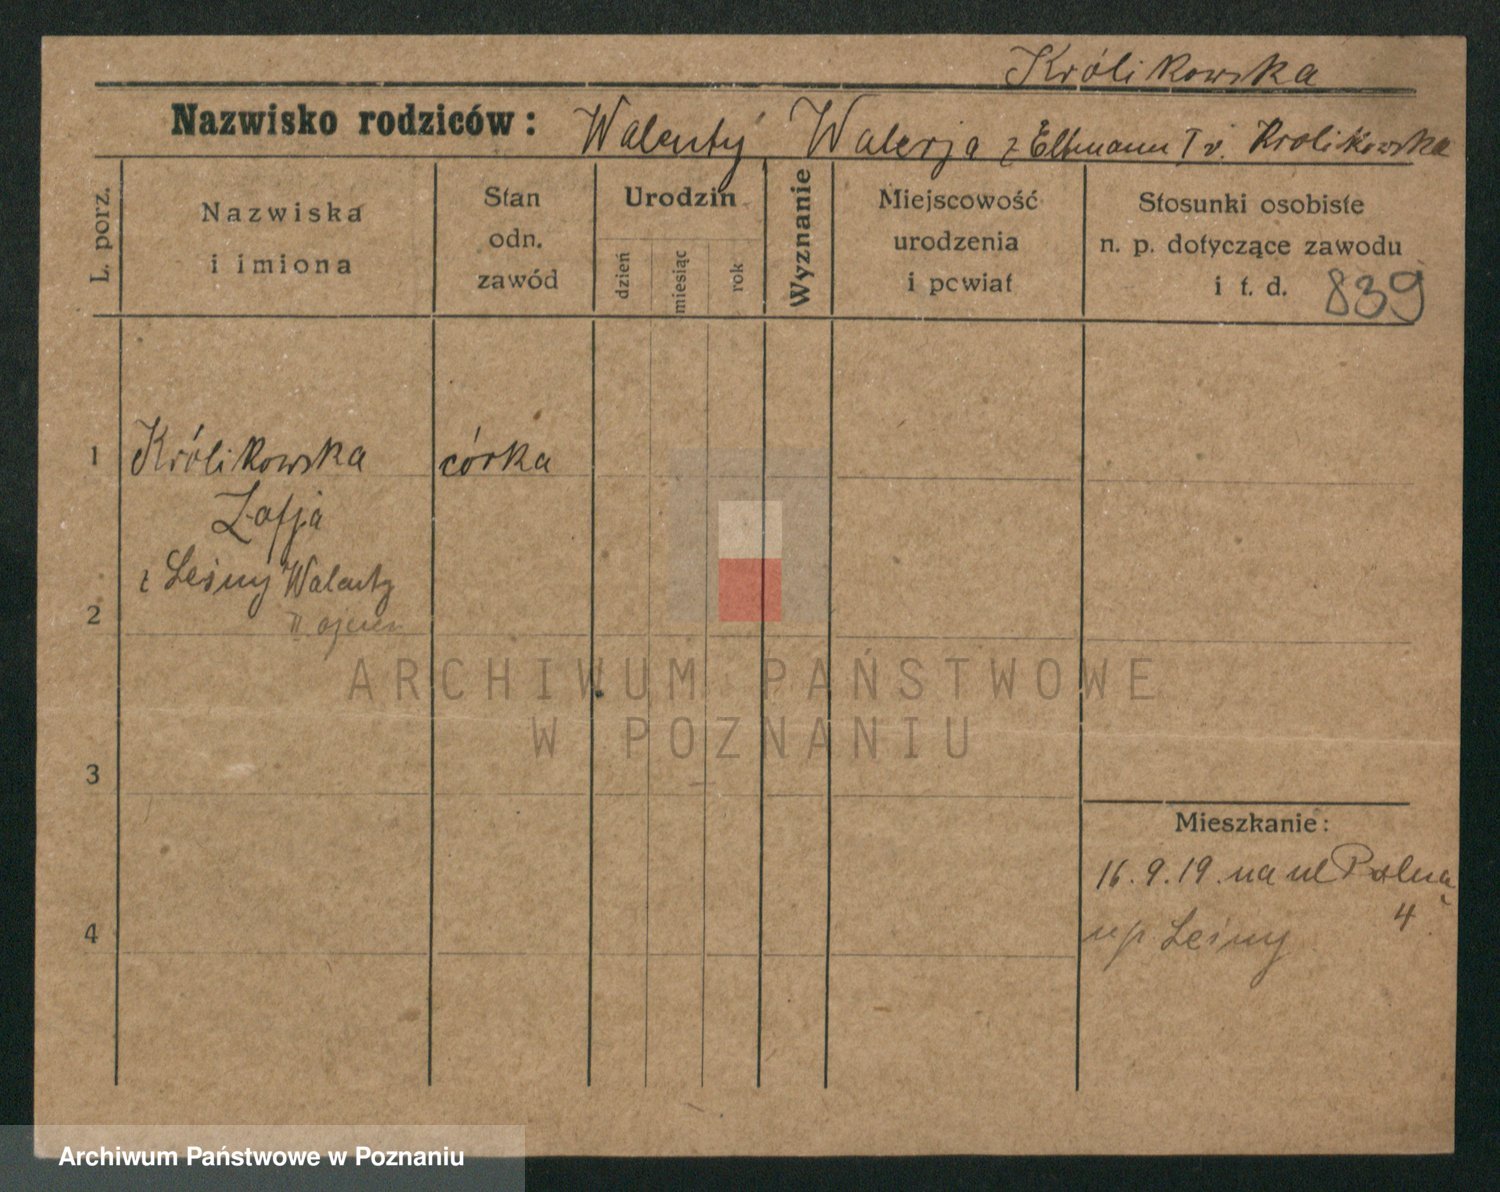 Królikowska
Nazwisko rodziców: Walenty Walerja z Eltmann I v. Krolikowska
L. porz.
Nazwiska
i imiona
Stan
odn.
zawód
Urodzin
dzień
miesiąc
rok
Wyznanie
Miejscowość
urodzenia
i powiat
Stosunki osobiste
n. p. dotyczące zawodu
i t. d. 839
1 Królikowska córka
Zofja
z Leśny Walenty
2 II ojciec
ARCHIWUM PAŃSTWOWE
W POZNANIU
3
Mieszkanie:
16.9.19. na ul Polną
4
4 u/p Leśny
Archiwum Państwowe w Poznaniu